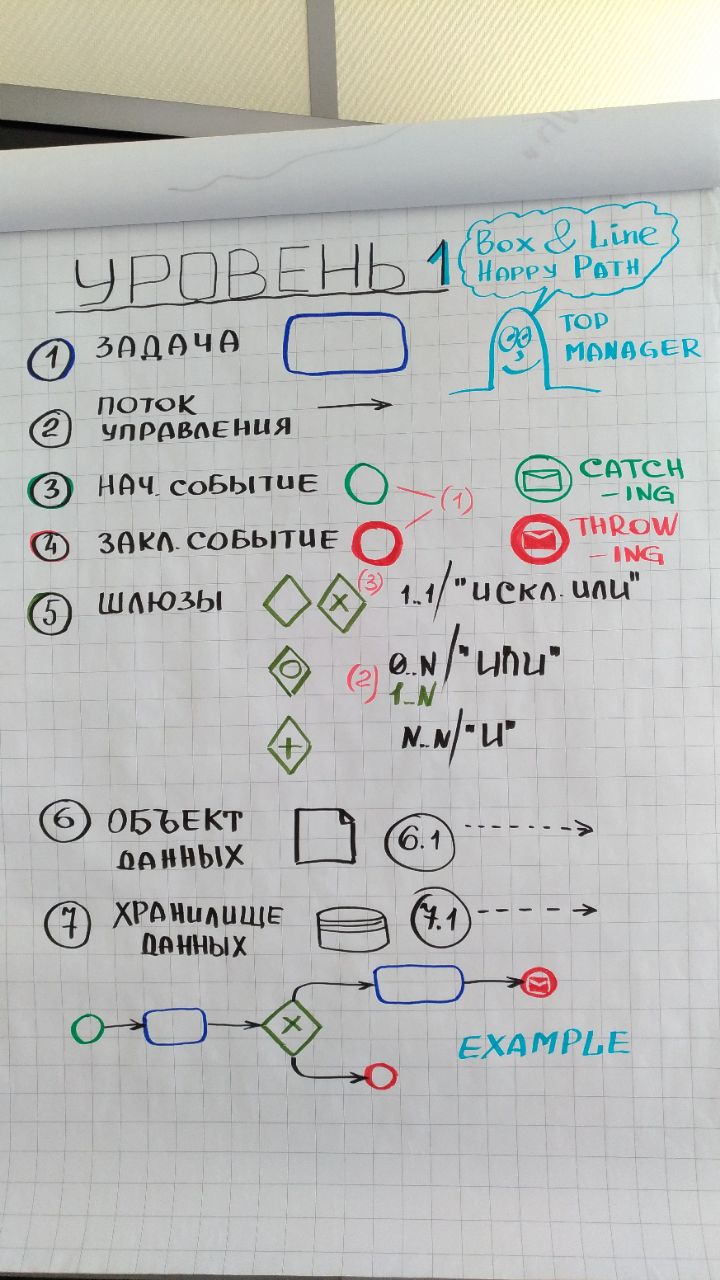 УРОВЕНЬ 1
Box & Line
Happy Path
TOP
MANAGER
1 ЗАДАЧА
2 ПОТОК
УПРАВЛЕНИЯ
3 НАЧ. СОБЫТИЕ
(1)
CATCH
-ING
4 ЗАКЛ. СОБЫТИЕ
THROW
-ING
5 ШЛЮЗЫ
X (3) 1..1/"ИСКЛ. ИЛИ"
(2) 0..N/"ИЛИ"
1..N
+ N..N/"И"
6 ОБЪЕКТ
ДАННЫХ
6.1
7 ХРАНИЛИЩЕ
ДАННЫХ
7.1
X
EXAMPLE